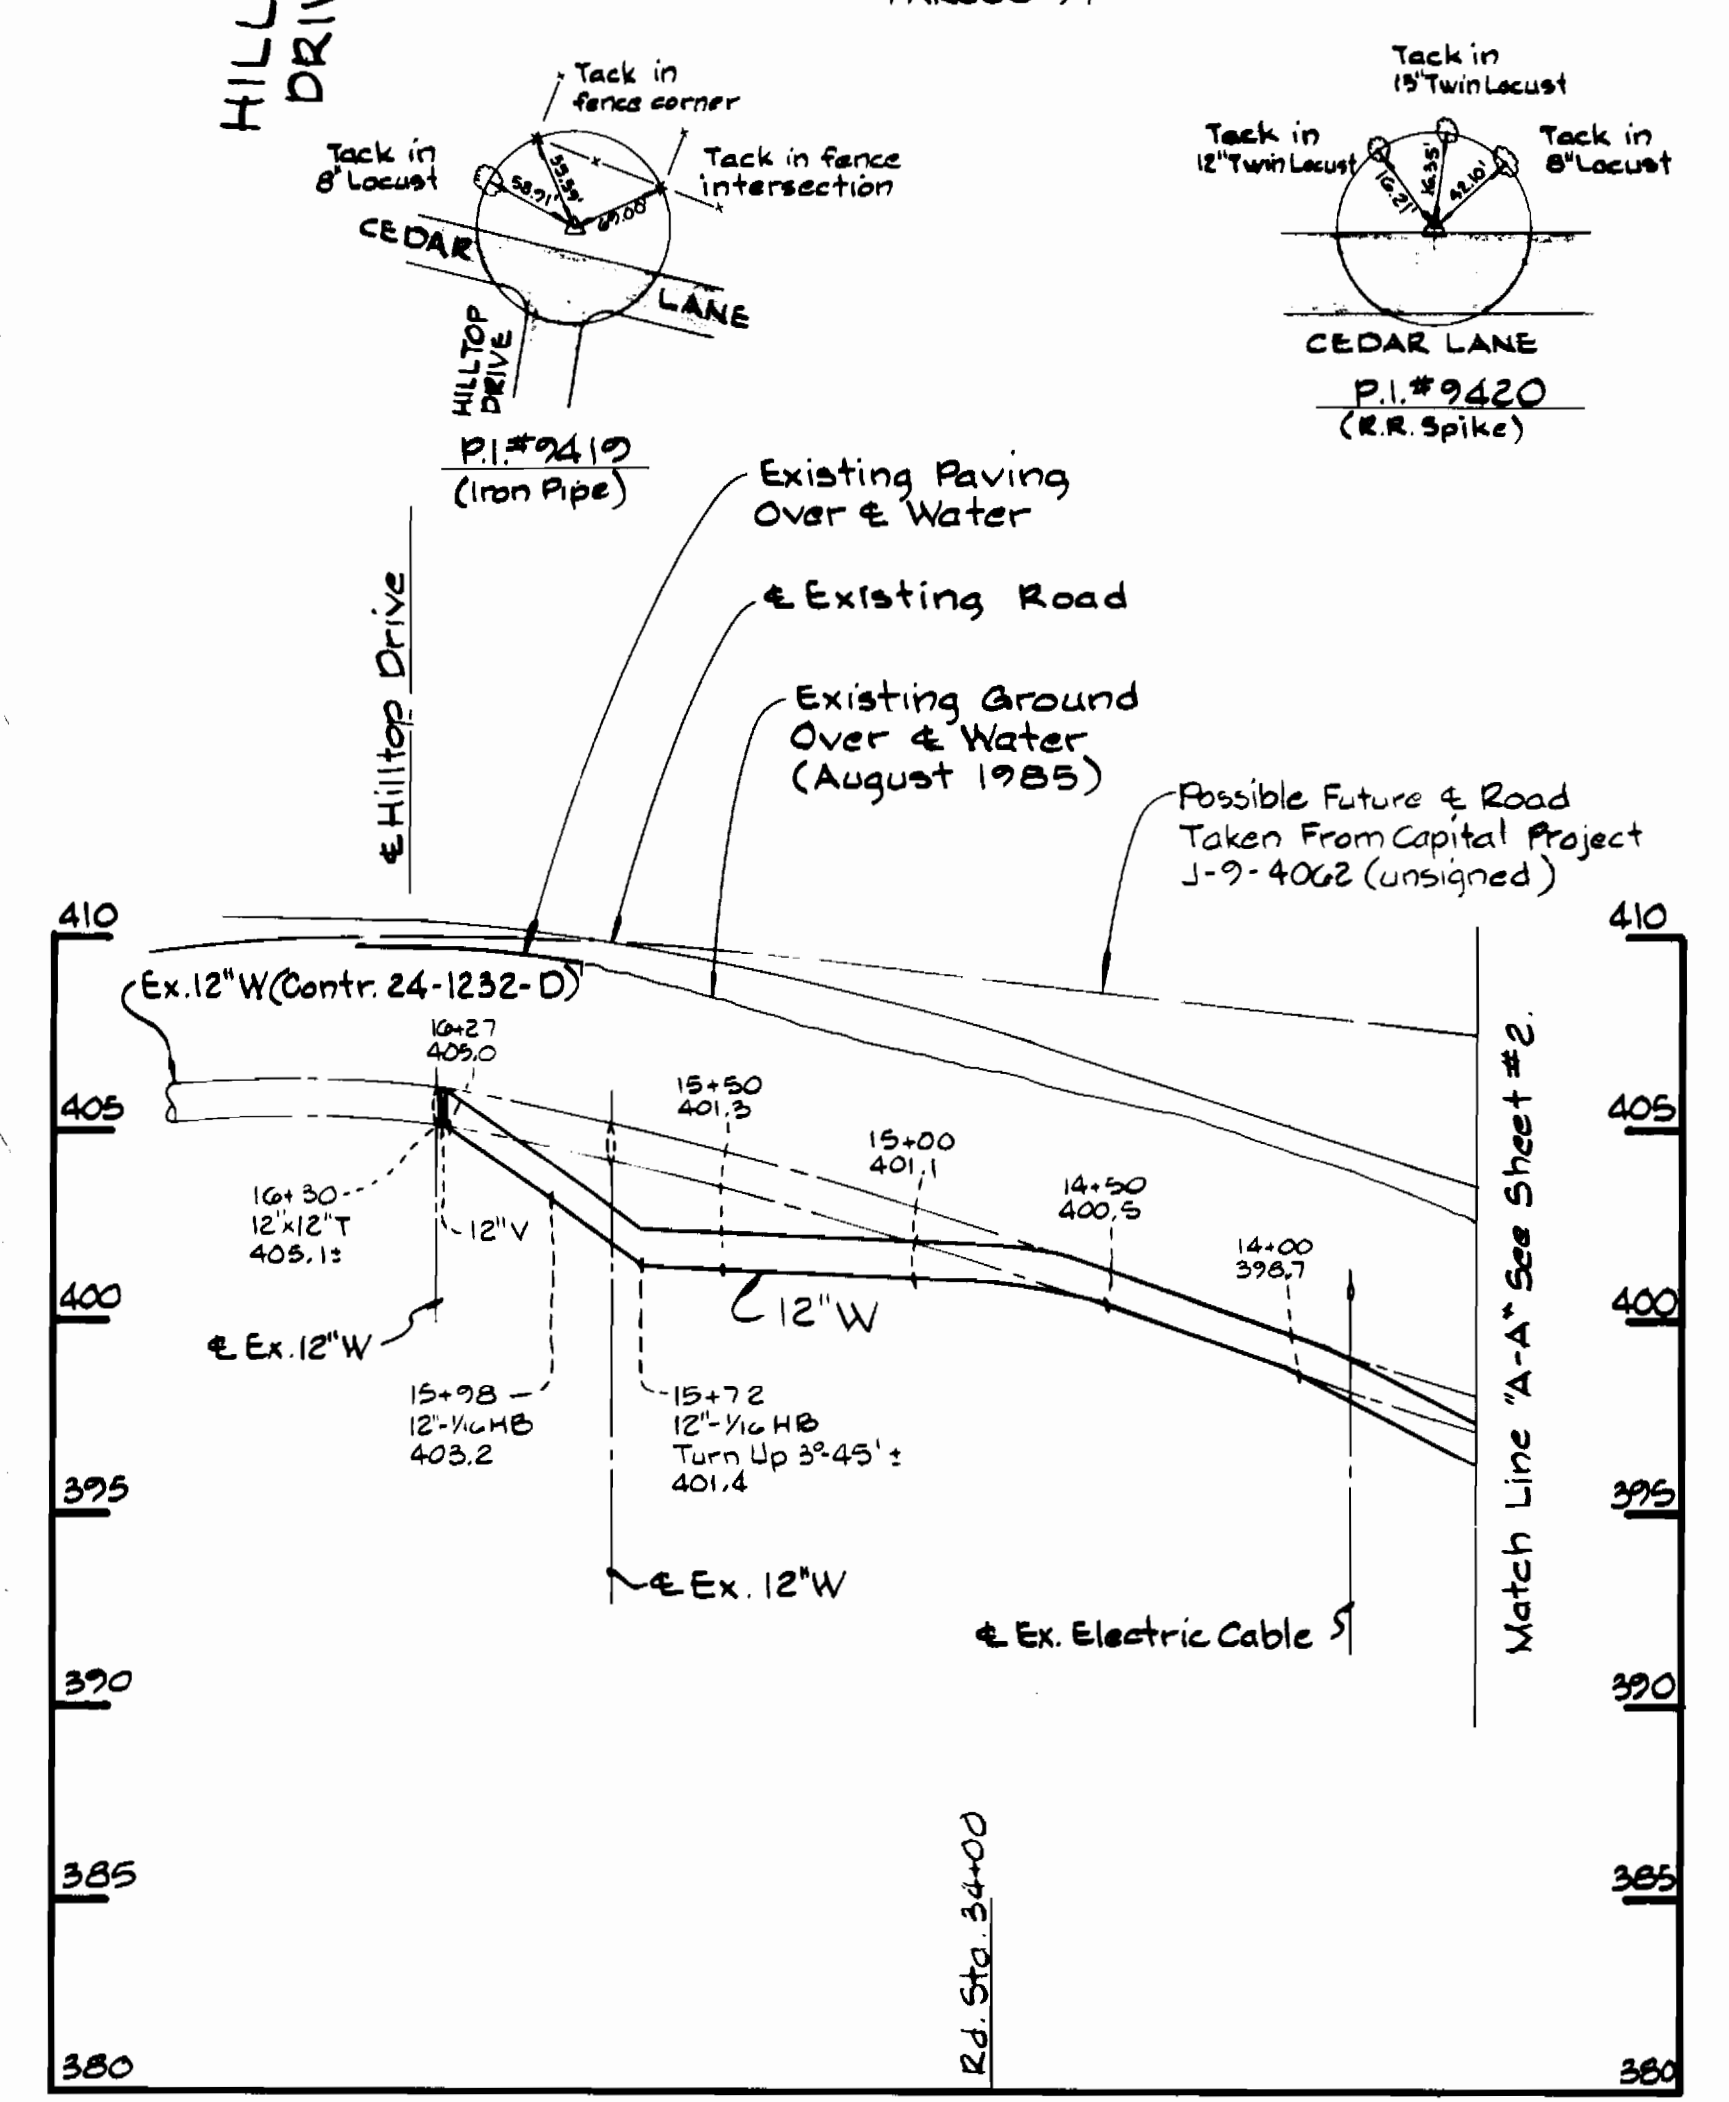 HILL
DRIV
Tack in
fence corner
Tack in
8" Locust
Tack in fence
intersection
58.71'
55.59'
CEDAR
LANE
HILLTOP
DRIVE
P.I.#9419
(Iron Pipe)
Tack in
15" Twin Locust
Tack in
12" Twin Locust
Tack in
8" Locust
16.21'
16.35'
42.10'
CEDAR LANE
P.I.#9420
(R.R. Spike)
℄ Hilltop Drive
Existing Paving
Over ℄ Water
℄ Existing Road
Existing Ground
Over ℄ Water
(August 1985)
Possible Future ℄ Road
Taken From Capital Project
J-9-4062 (unsigned)
410
410
Ex.12"W(Contr. 24-1232-D)
16+27
405.0
405
405
15+50
401.3
15+00
401.1
14+50
400.5
14+00
398.7
16+30
12"x12"T
405.1±
12"V
400
400
12"W
℄ Ex.12"W
15+98
12"-1/16 HB
403.2
15+72
12"-1/16 HB
Turn Up 3°-45' ±
401.4
395
395
℄ Ex. 12"W
℄ Ex. Electric Cable
Match Line "A-A" See Sheet #2.
390
390
385
385
Rd. Sta. 34+00
380
380